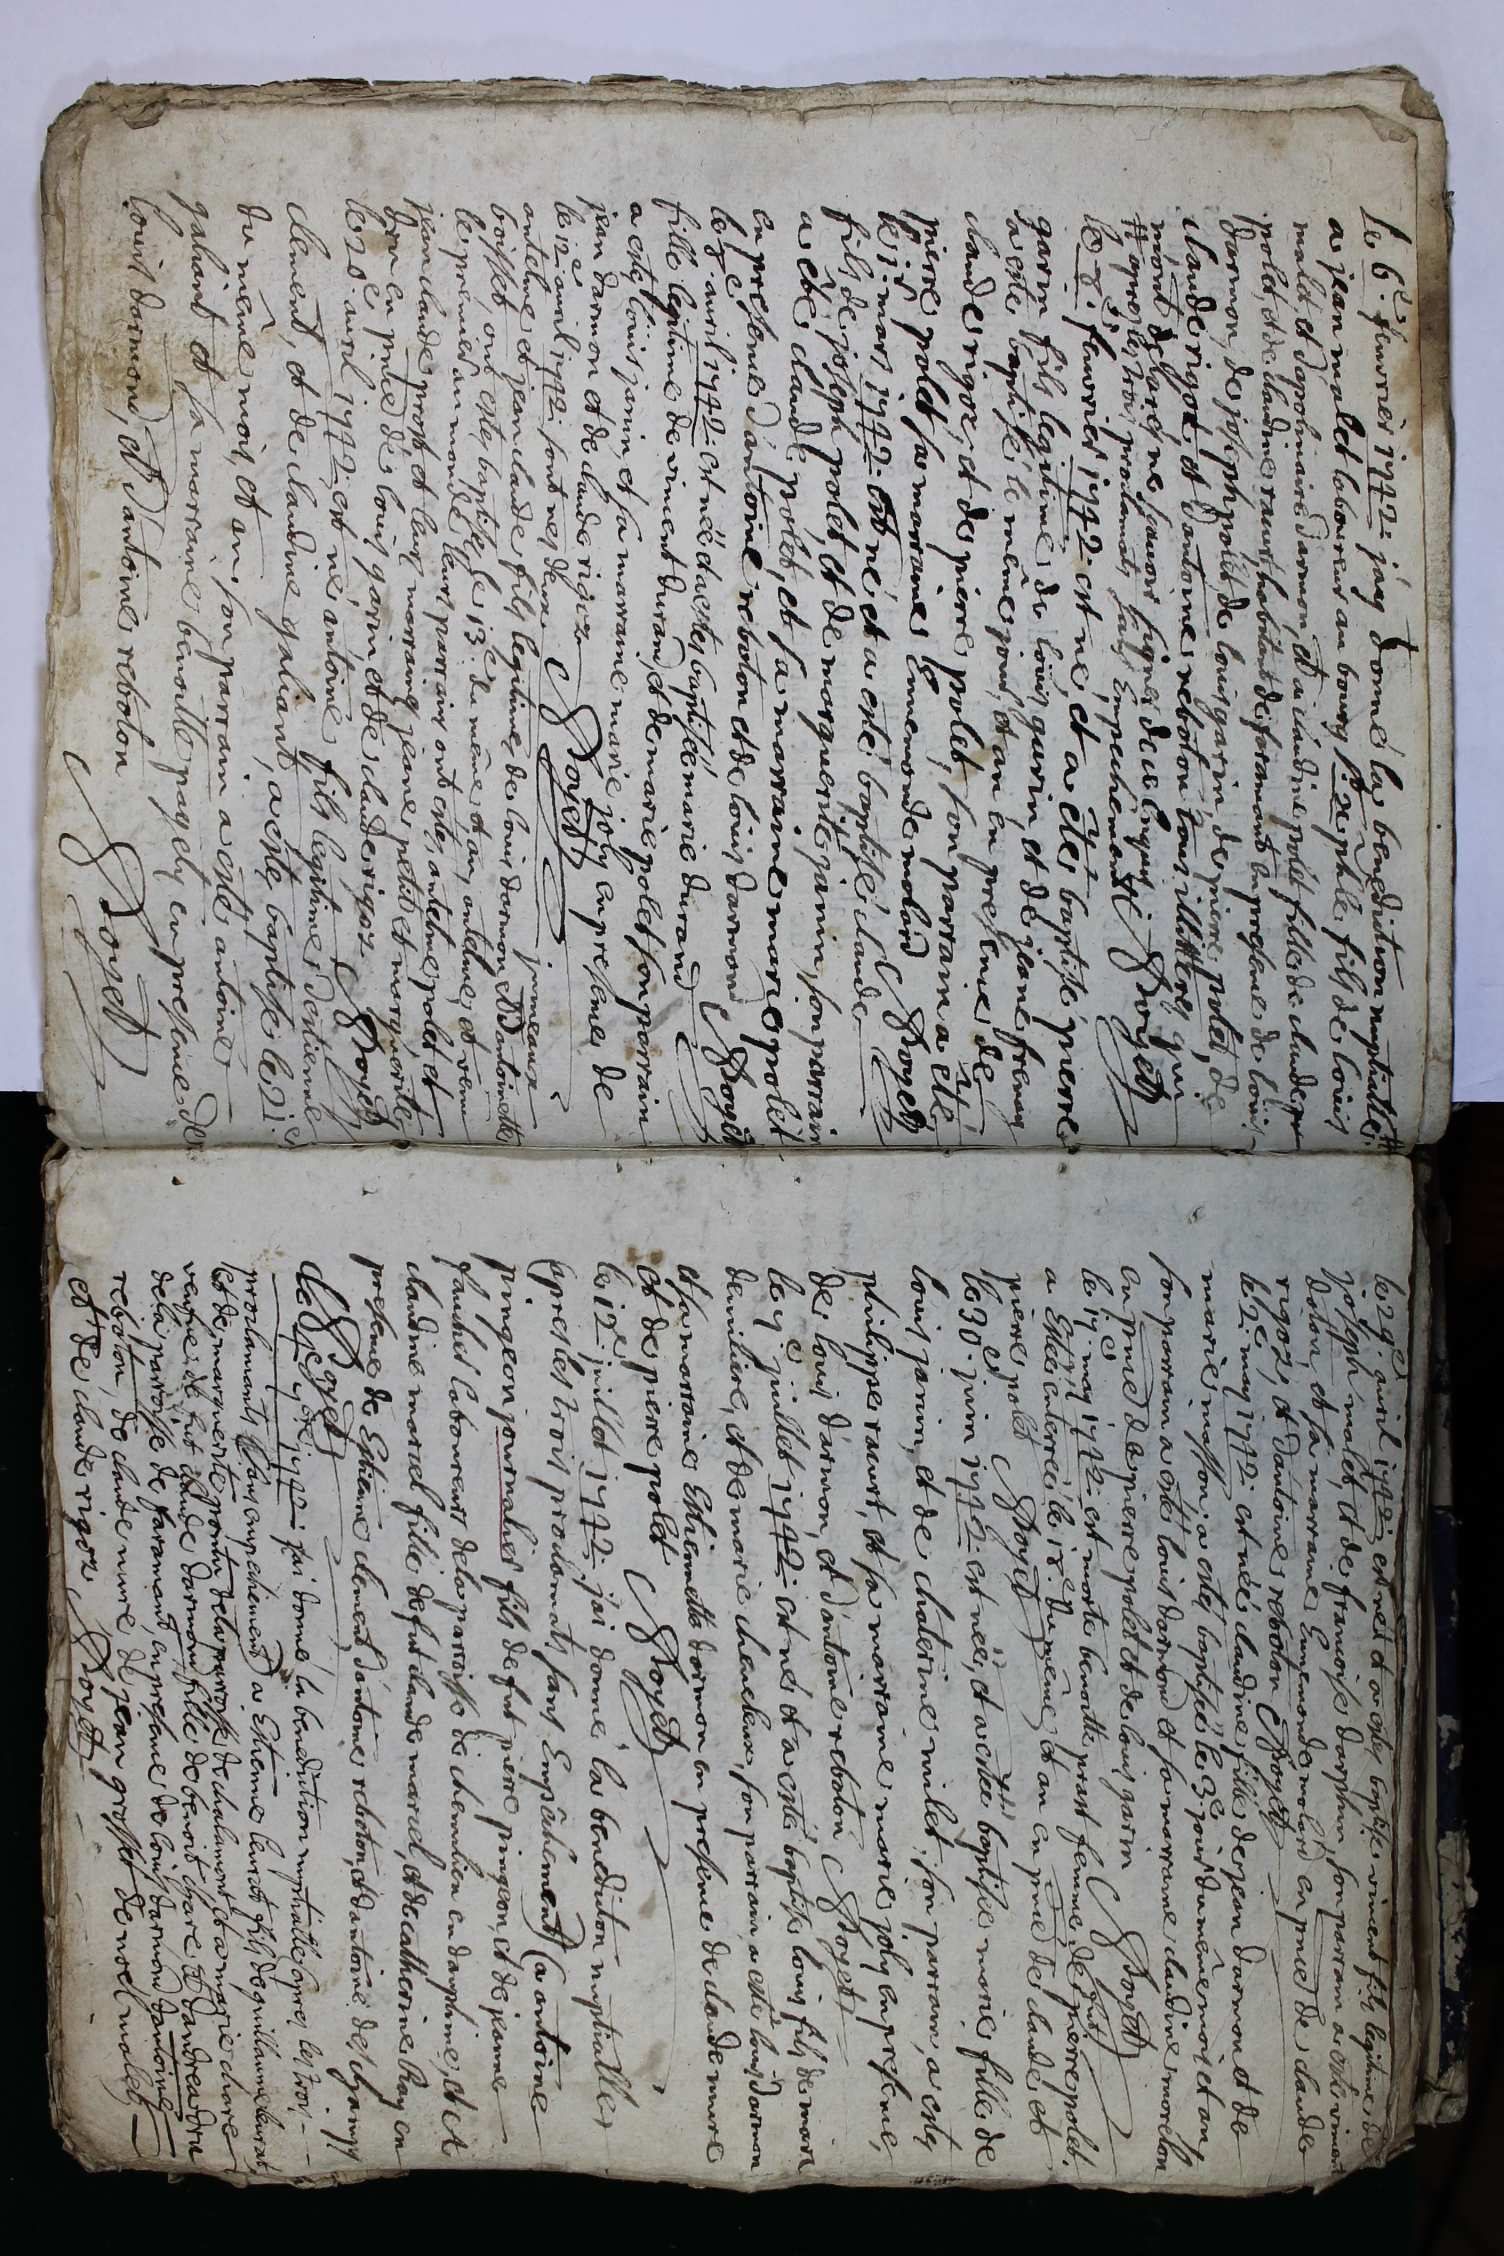 le 6.e feuvrier 1742 j'ay donné la benediction nuptialle #
a jean malet laboureur au bourg fils de louis
malet, et d'apolinaire darmon, et a claudine polet fille de claude
polet, et de claudine raurt habitants de faramant en presence de louis
darmon, de joseph polet, de louis garin, de pierre polet, de
claude rigoz, et d'antoine reboton tous illitterez qui
m'ont declarez ne sçavoir signer de ce enquis
# apres les trois proclamats sans empechement Royet
le 8.e feuvrier 1742 est né, et a été baptisé pierre
garin fils legitime de louis garin, et de jeane frenay
a este baptisé le même jour, et an, en presence de
claude rigoz, et de pierre polet, son parrain a été
pierre polet sa marraine Ennemonde molard
le 1.r mars 1742 est né et a esté baptisé claude
fils de joseph polet, et de marguerite janin, son parrain
a été claude polet, et sa marraine marie polet
en presence d'antoine reboton et de louis darmon
le 8.e auril 1742 est née et a estée baptisée marie durand Royet
fille legitime de vincent durand, et de marie polet son parrain
a esté louis janin, et sa marraine marie joly en presence de
jean darmon et de claude rigoz Royet
le 12.e auril 1742 sont nez deux jumeaux
antelme et jean claude fils legitime de louis darmon et d'antoinette
boisset, ont esté baptisez le 13.e du même et an, antelme est venu
le premier au monde, leurs parrains ont esté, antelme polet et
jean claude prost et leurs marraines jeane petit et marguerite
en pnce de louis garin et de claude rigoz Royet
le 20.e auril 1742 est né antoine fils legitime d'estienne
clement, et de claudine galiant, a esté baptisé le 21.e
du même mois, et an, son parrain a esté antoine
galiant et sa marraine benoitte pagely en presence de
louis darmond, et d'antoine reboton
Royet
le 29.e auril 1742 est né et a esté baptisé vincent fils legitime de
joseph malet, et de françoise darphin, son parrain a esté vincent
et sa marraine Ennemonde molard en pnce de claude
rigoz, et d'antoine reboton Royet
le 2.e may 1742 est née claudine fille de jean darmon et de
marie masson, a esté baptisée le 3.e jour du même mois et an
son parrain a esté louis darmon et sa marraine claudine morelon
en pnce de pierre polet et de louis garin Royet
le 17.e may 1742 est morte benoitte prast femme de pierre polet.
a Estée enterrée le 18.e du même et an en pnce de claude et
pierre polet Royet
le 30.e juin 1742 est née, et a estée baptisée marie fille de
louis janin, et de chaterine milet, son parrain, a esté
philippe raurt, et sa marraine marie joly en presence,
de louis darmon, et d'antoine reboton Royet
le 9.e juillet 1742 est né et a esté baptisé louis fils de marc
demiliere, et de marie cheneleux, son parrain a esté louis darmon
et sa marraine Estiennette darmon en presence de claude mure
et de pierre polet Royet
le 12.e juillet 1742 j'ai donné la benediction nuptialle
(apres les trois proclamats sans Empêchement) a antoine
pingeon journalier fils de fut pierre pingeon, et de jeanne
fauchet laboureurs de la parroisse de chemilieu en dauphiné, et a
claudine marcel fille de fut claude marcel, et de catherine Ray en
presence de Estienne clement d'antoine reboton, et d'antoine deschamps
Royet
1742 j'ai donné la benediction nuptialle (apres les trois
proclamants sans empechement) a Estienne
et de marguerite de la parroisse de chalamont et a marie chare
veufve de fut claude darmon, fille de benoit chare et d'andrea
de la parroisse de faramant, en presence de louis darmond d'antoine
reboton, de claude mure de jean grosset de noel malet
et de claude rigoz Royet